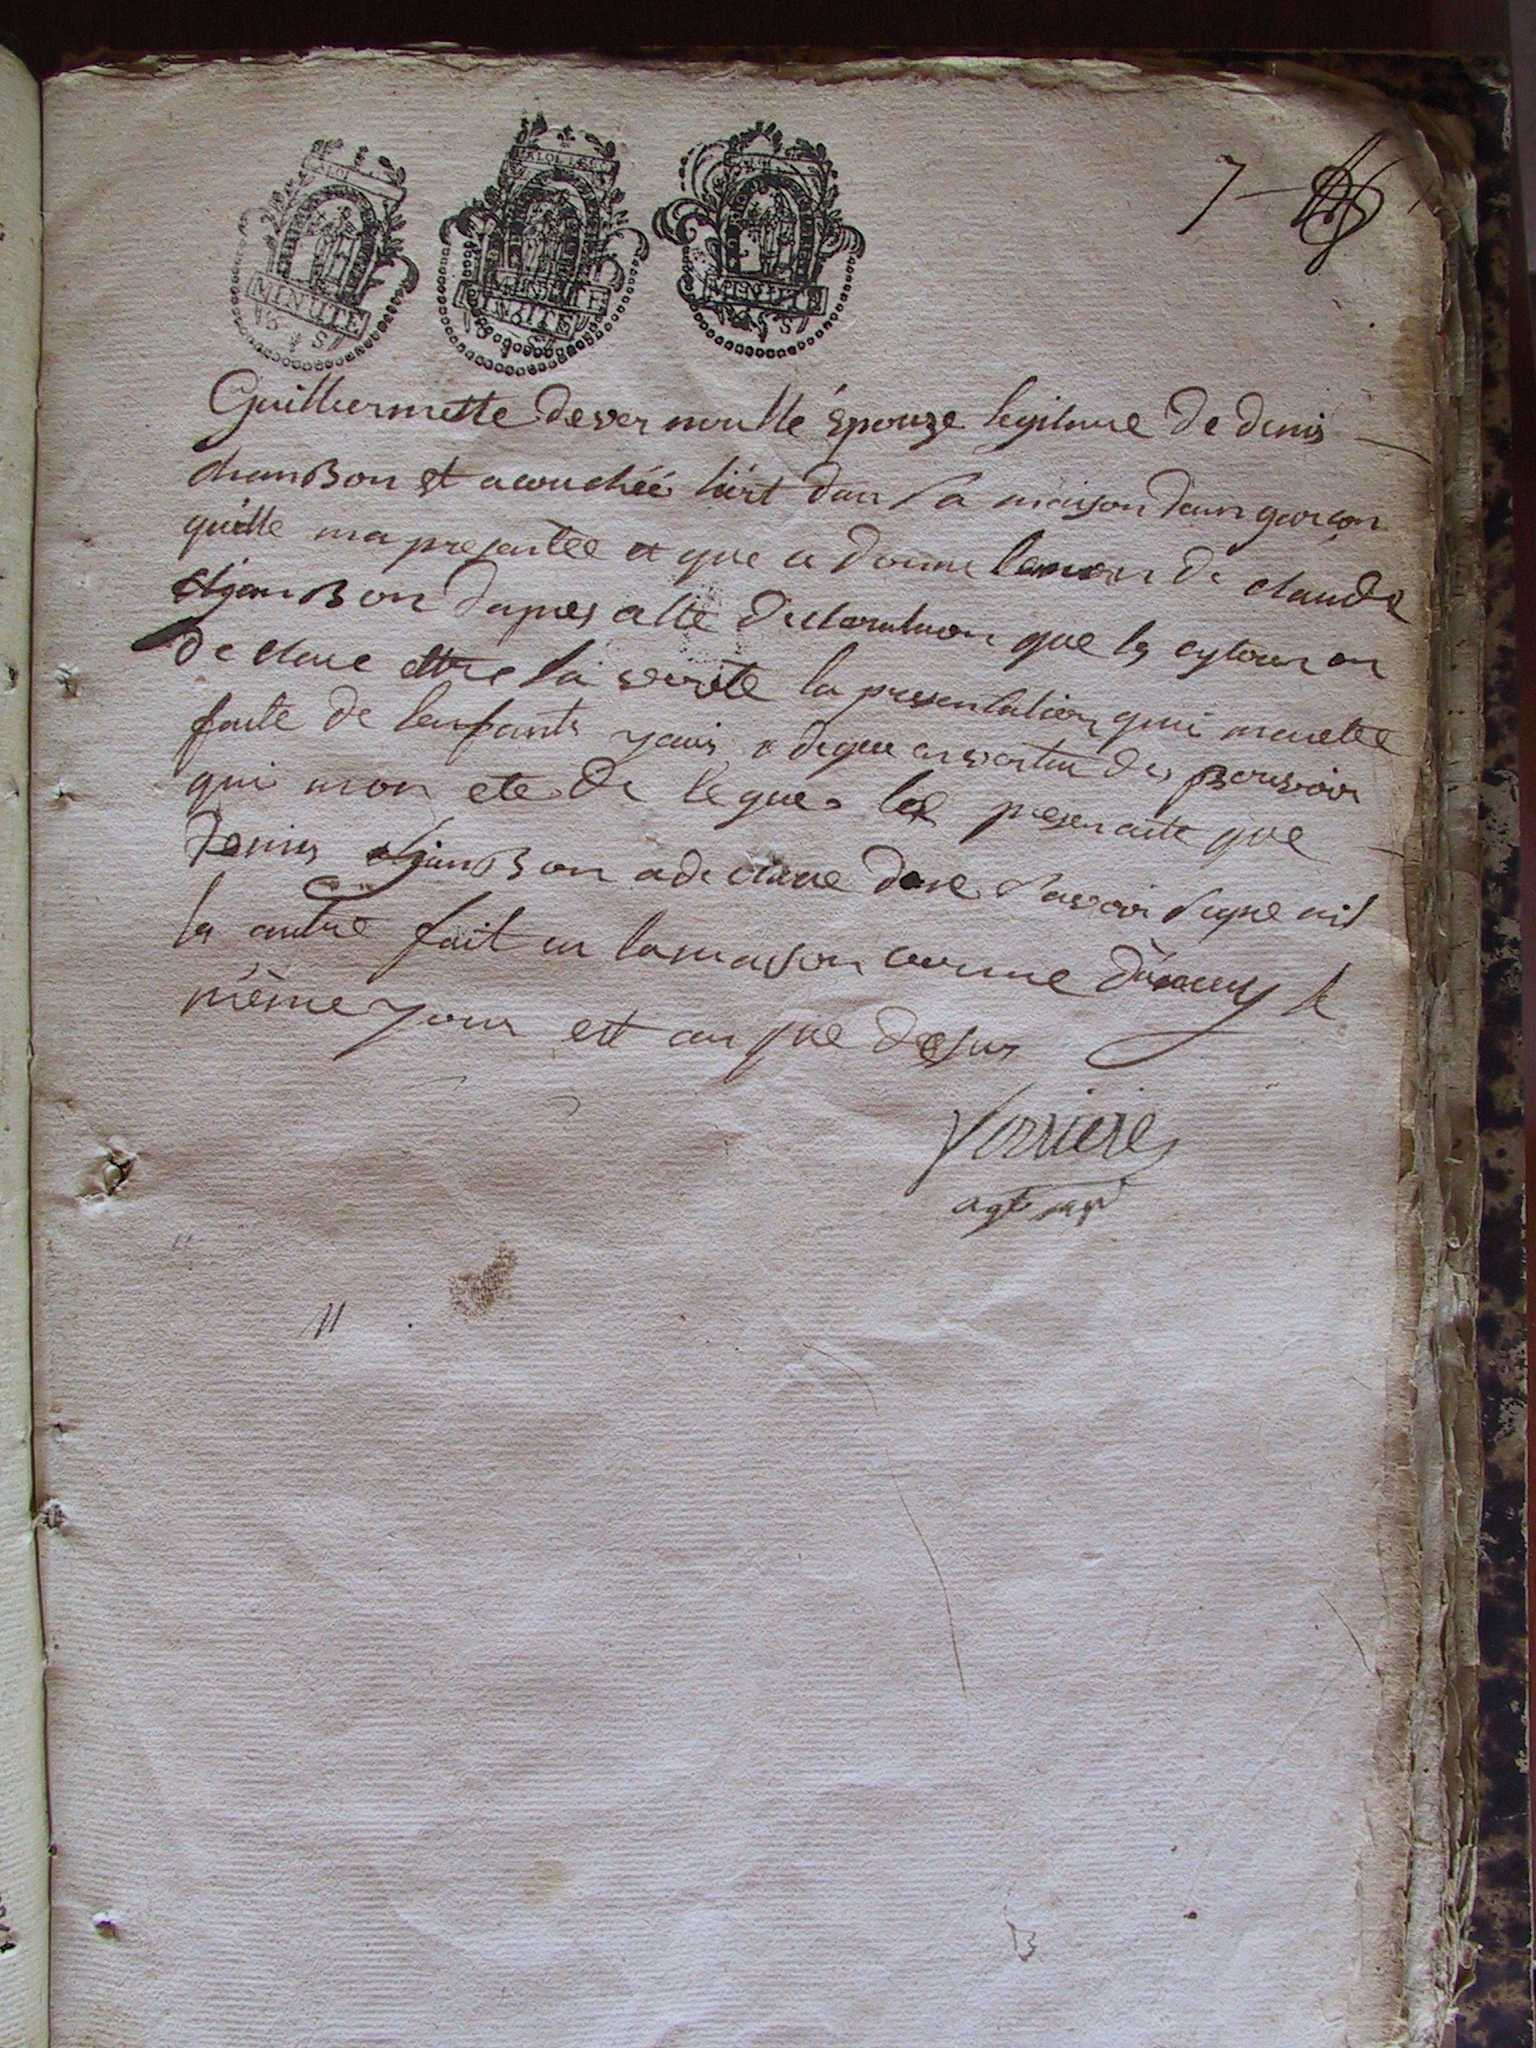 7
MINUTE
MINUTE
MINUTE
Guilliermette devernoulle épouze legitime de denis
chanBon et acouchéé hiert dan sa maison daun garçon
quelle ma presantee et que a donne lenon de claude
chjanBon dapres alte declaration que les cytoien on
declare ettre la verite la presentation qui maette
faite de lenfants yais redigee en vertu des pouvoir
qui mon ete de legue les presen acte que
denis chjanBon a declare dene savoir signe nis
les autre fait en la maison comune le
même jour est an que desus
Verrieres
agt